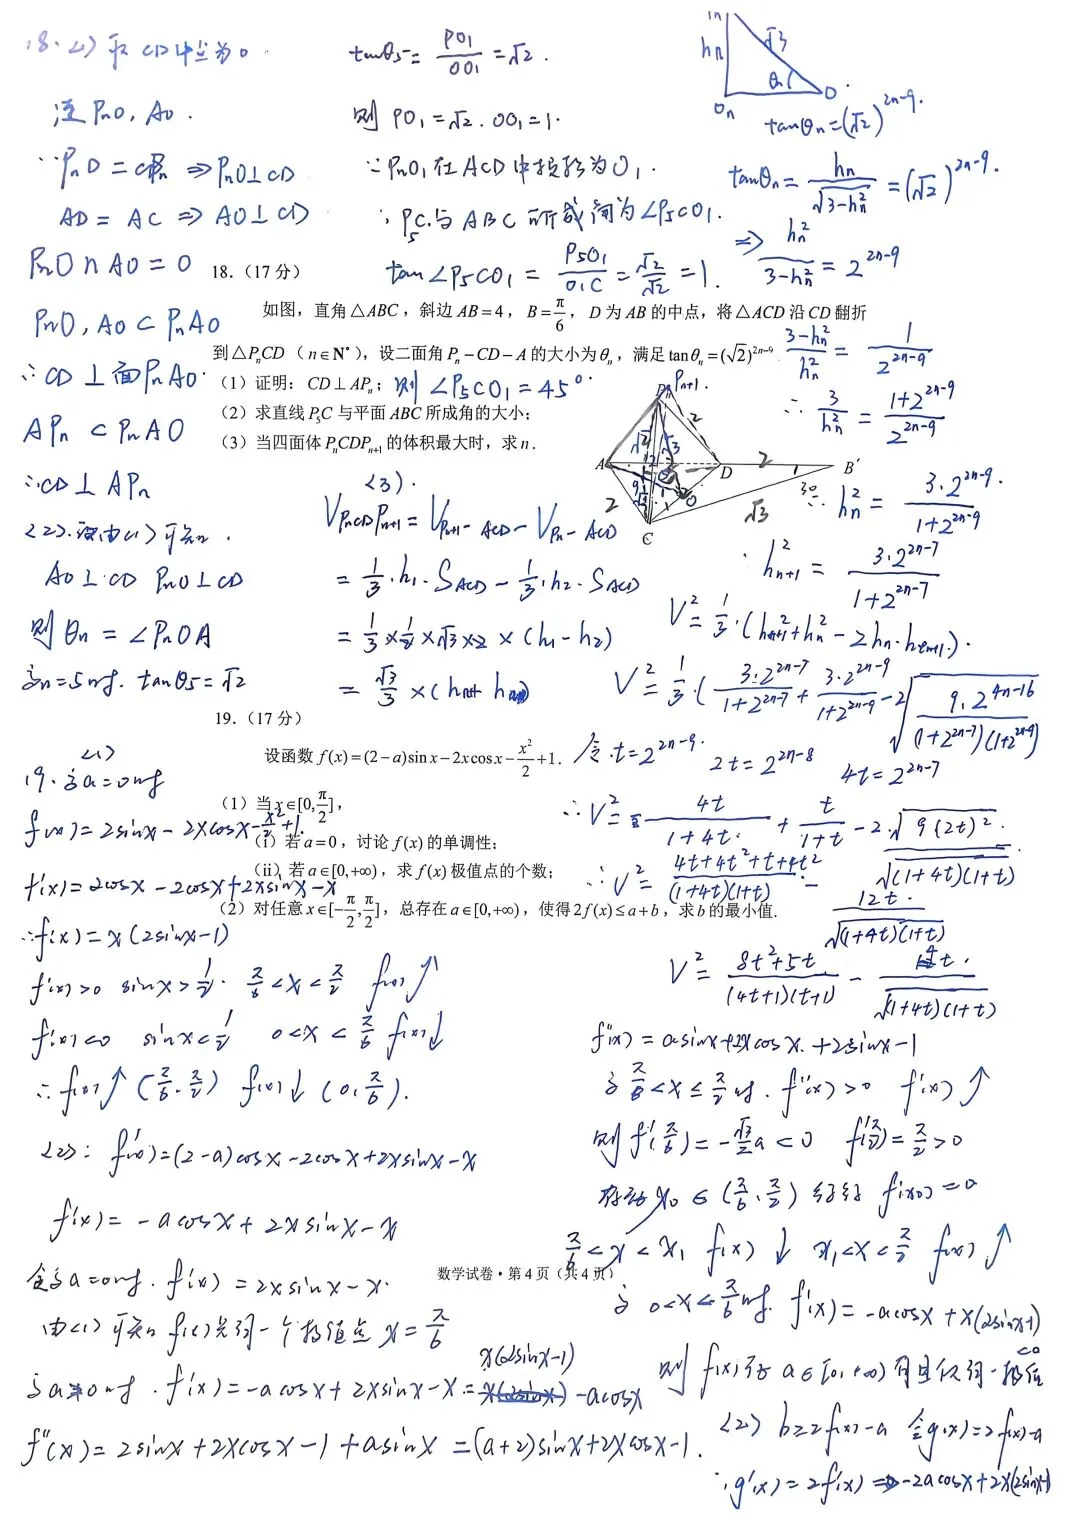 18. (1) 取 CD 中点为 O.
连 PnO, AO.
∵ PnD = CPn ⇒ PnO⊥CD
AD = AC ⇒ AO⊥CD
PnO ∩ AO = O
PnO, AO ⊂ PnAO
∴ CD ⊥ 面PnAO.
APn ⊂ PnAO
∴ CD ⊥ APn
(2). 由(1)可知.
AO⊥CD PnO⊥CD
则 θn = ∠PnOA
当n=5时. tanθ5=√2
tanθ5 = PO1/OO1 = √2.
则 PO1=√2. OO1=1.
∵ PnO1 在 ACD 中投影为 O1.
∴ P5C 与 ABC 所成角为 ∠P5CO1.
tan∠P5CO1 = P5O1/O1C = √2/√2 = 1.
则 ∠P5CO1=45°.
hn √3 θn On O
tanθn=(√2)^(2n-9).
tanθn = hn/√(3-hn²) = (√2)^(2n-9).
⇒ hn²/(3-hn²) = 2^(2n-9)
(3-hn²)/hn² = 1/2^(2n-9)
∴ 3/hn² = (1+2^(2n-9))/2^(2n-9)
∴ hn² = 3·2^(2n-9)/(1+2^(2n-9))
∴ hn+1² = 3·2^(2n-7)/(1+2^(2n-7))
18.（17 分）
如图，直角△ABC，斜边 AB=4，B=π/6，D 为 AB 的中点，将△ACD 沿 CD 翻折
到△PnCD（n∈N*），设二面角 Pn－CD－A 的大小为 θn，满足 tanθn=(√2)^(2n-9)
（1）证明：CD⊥APn；
（2）求直线 P5C 与平面 ABC 所成角的大小；
（3）当四面体 PnCDPn+1 的体积最大时，求 n.
Pn Pn+1 A D B' C O 2 2 2 √2 √3 √3 30°
(3).
VPnCDPn+1 = VPn+1-ACD - VPn-ACD
= 1/3·h1·SACD - 1/3·h2·SACD
= 1/3×1/2×√3×2×(h1-h2)
V² = 1/3·(hn+1²+hn²-2hn·hn+1).
V² = 1/3·(3·2^(2n-7)/(1+2^(2n-7)) + 3·2^(2n-9)/(1+2^(2n-9)) - 2√(9·2^(4n-16)/((1+2^(2n-7))(1+2^(2n-9))))
令 t=2^(2n-9). 2t=2^(2n-8) 4t=2^(2n-7)
∴ V² = 4t/(1+4t) + t/(1+t) - 2·√(9(2t)²)/√((1+4t)(1+t)).
∴ V² = (4t+4t²+t+4t²)/((1+4t)(1+t)) - 12t/√((1+4t)(1+t))
V² = (8t²+5t)/((4t+1)(t+1)) - 4t/√((1+4t)(1+t))
19.（17 分）
设函数 f(x)=(2－a)sin x－2xcos x－x²/2+1.
（1）当 x∈[0,π/2]，
（i）若 a=0，讨论 f(x) 的单调性；
（ii）若 a∈[0,+∞)，求 f(x) 极值点的个数；
（2）对任意 x∈[－π/2,π/2]，总存在 a∈[0,+∞)，使得 2f(x)≤a+b，求 b 的最小值.
(1)
19. 当a=0时
f(x)=2sinx-2xcosx-x²/2+1.
f'(x)=2cosx-2cosx+2xsinx-x
∴f'(x)=x(2sinx-1)
f'(x)>0 sinx>1/2. π/6<x<π/2 f(x)↑
f'(x)<0 sinx<1/2 0<x<π/6 f(x)↓
∴ f(x)↑(π/6, π/2) f(x)↓(0, π/6).
(2): f'(x)=(2-a)cosx-2cosx+2xsinx-x
f'(x)=-acosx+2xsinx-x
当a=0时. f'(x)=2xsinx-x.
由(1)可知 f(x)只有一个极值点 x=π/6
当a≠0时. f'(x)=-acosx+2xsinx-x= x(2sinx-1) -acosx
f''(x)=2sinx+2xcosx-1+asinx=(a+2)sinx+2xcosx-1.
数学试卷·第 4 页（共 4 页）
f''(x)=asinx+2xcosx+2sinx-1
当 π/6<x≤π/2时. f''(x)>0 f'(x)↑
则 f'(π/6)=-√3/2 a<0 f'(π/2)=π/2>0
存在 x0∈(π/6, π/2) f'(x0)=0
π/6<x<x1 f(x)↓ x1<x<π/2 f(x)↑
当 0<x<π/6时. f'(x)=-acosx+x(2sinx-1)
<0
则 f(x)在 a∈[0,+∞)有且仅有一极值
(2) b≥2f(x)-a 令g(x)=2f(x)-a
∴ g'(x)=2f'(x)=-2acosx+2x(2sinx-1)